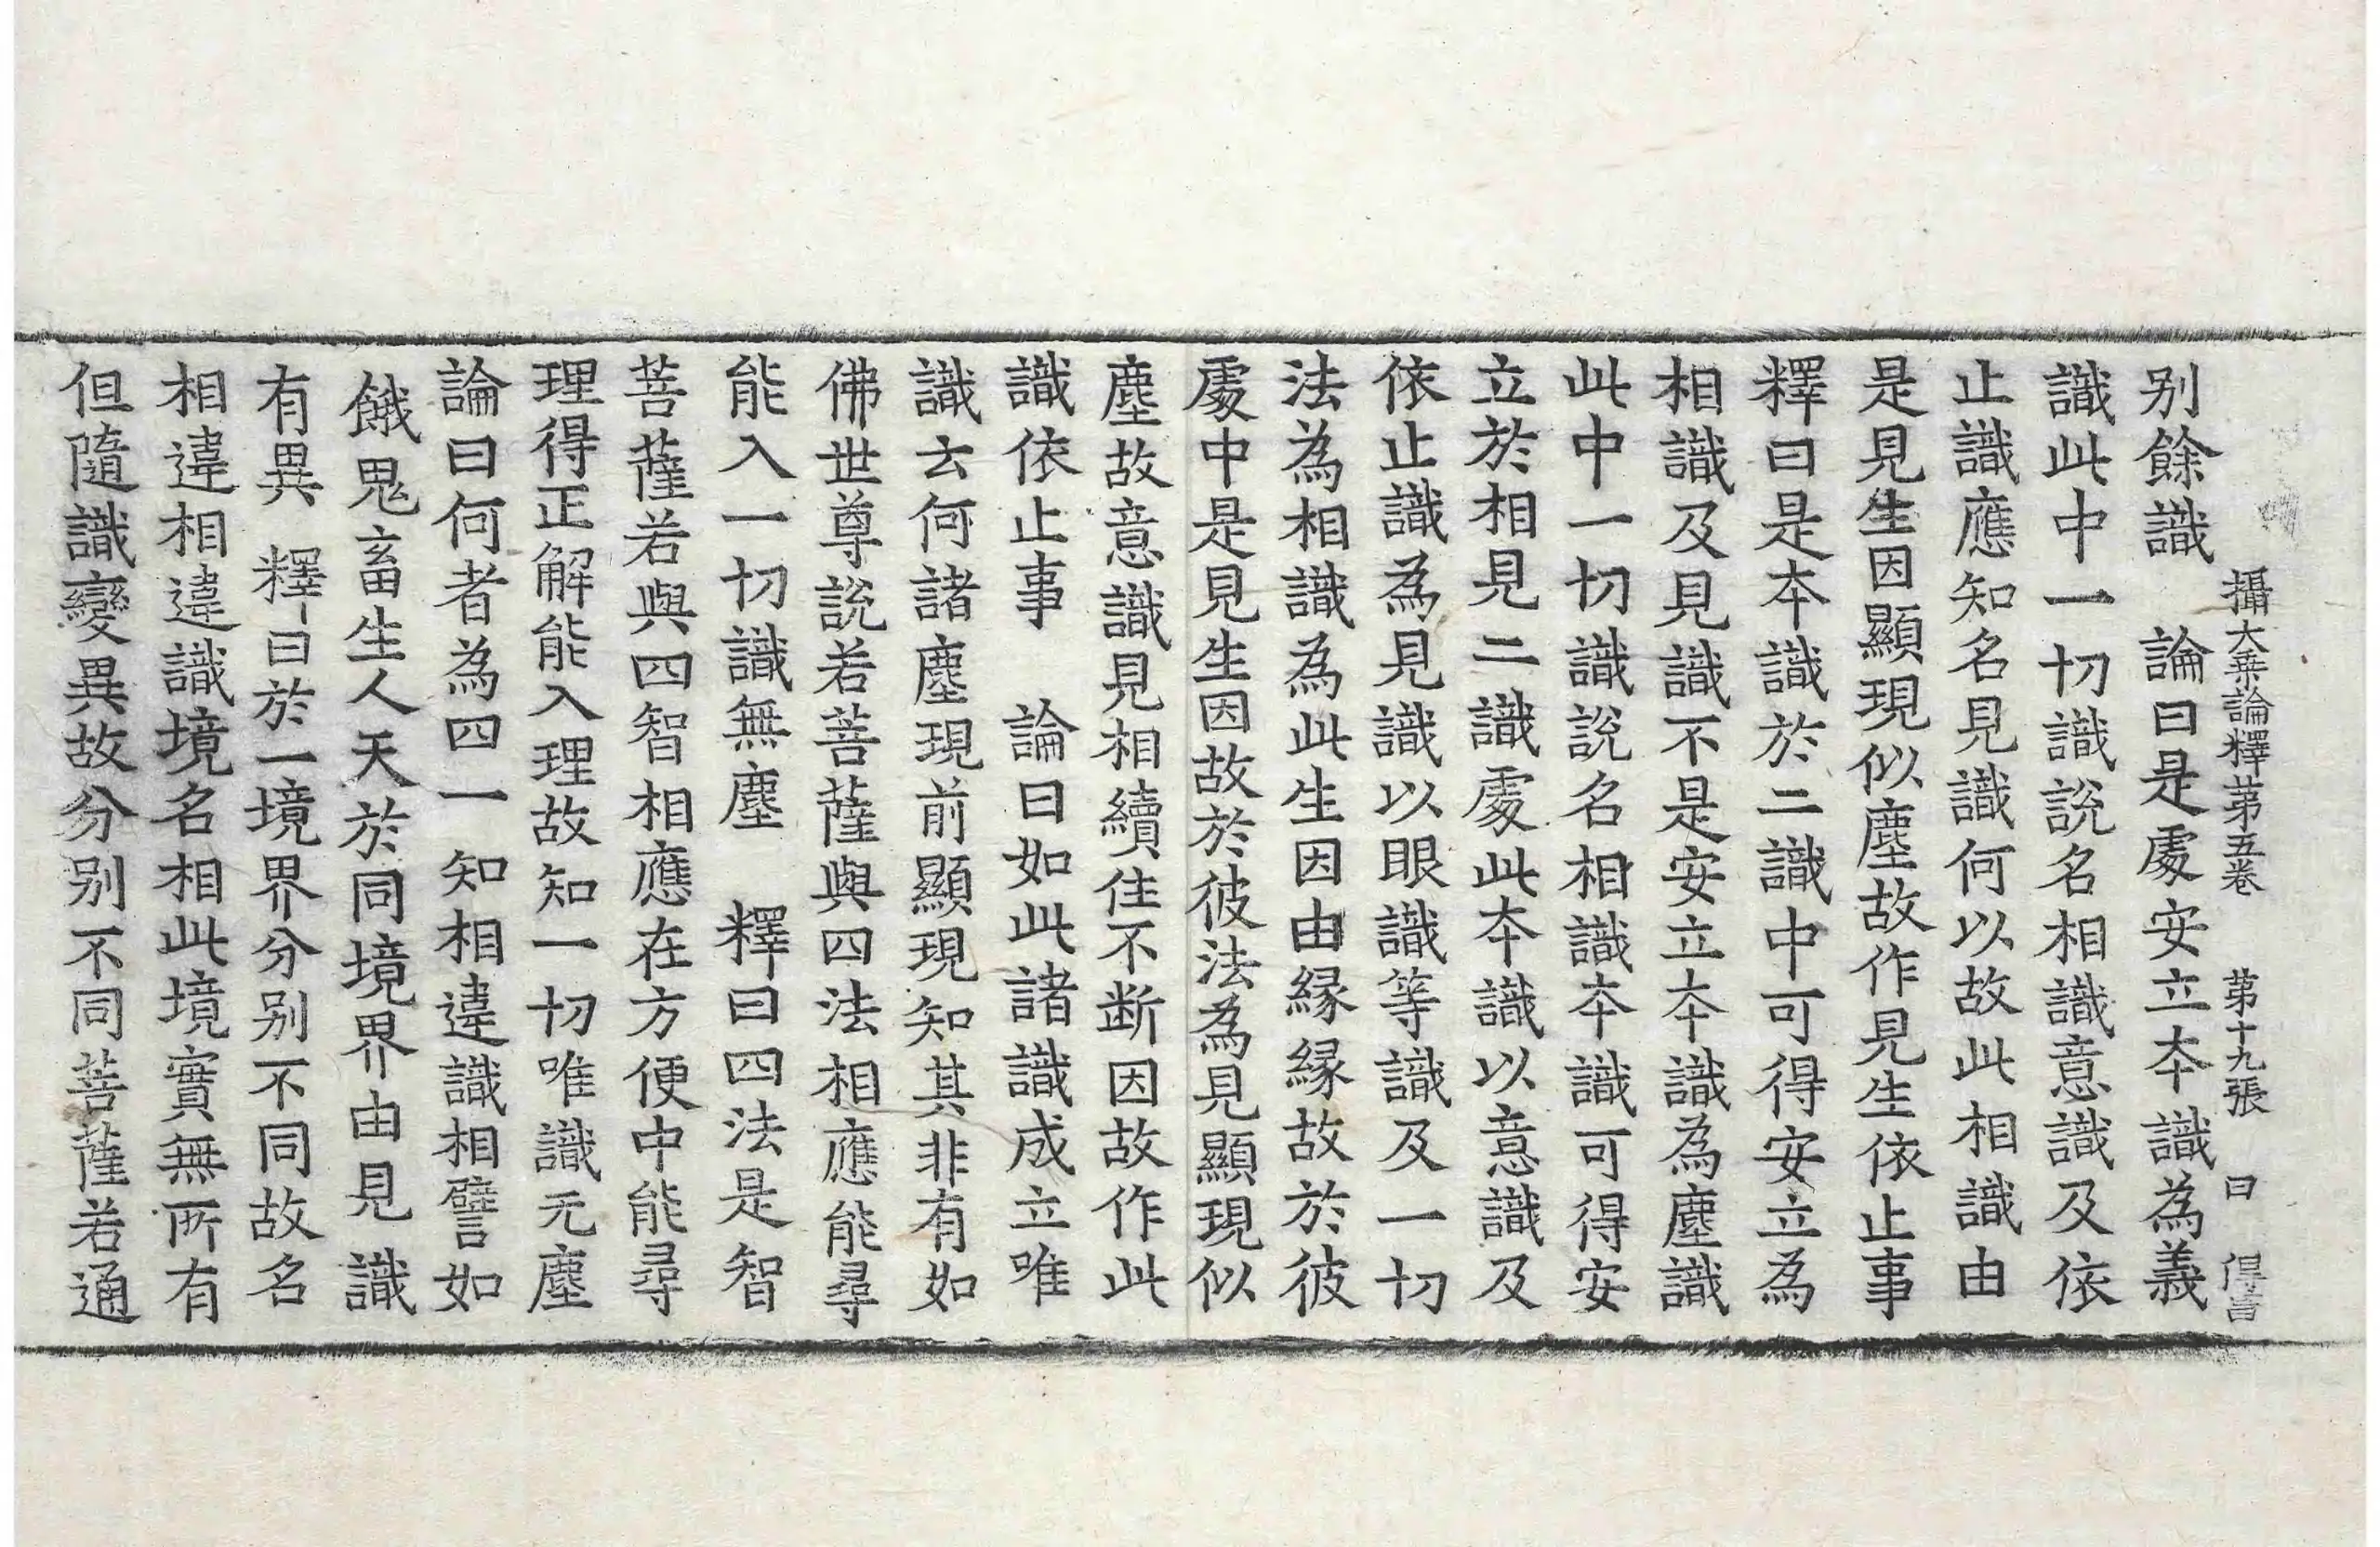 攝大乗論釋苐五卷 苐十九張 曰 得言
別餘識 論曰是處安立本識為義
識此中一切識說名相識意識及依
止識應知名見識何以故此相識由
是見生因顯現似塵故作見生依止事
釋曰是本識於二識中可得安立為
相識及見識不是安立本識為塵識
此中一切識說名相識本識可得安
立於相見二識處此本識以意識及
依止識為見識以眼識等識及一切
法為相識為此生因由縁縁故於彼
處中是見生因故於彼法為見顯現似
塵故意識見相續住不断因故作此
識依止事 論曰如此諸識成立唯
識云何諸塵現前顯現知其非有如
佛世尊說若菩薩與四法相應能尋
能入一切識無塵 釋曰四法是智
菩薩若與四智相應在方便中能尋
理得正解能入理故知一切唯識无塵
論曰何者為四一知相違識相譬如
餓鬼畜生人天於同境界由見識
有異 釋曰於一境界分別不同故名
相違相違識境名相此境實無所有
但隨識變異故分別不同菩薩若通